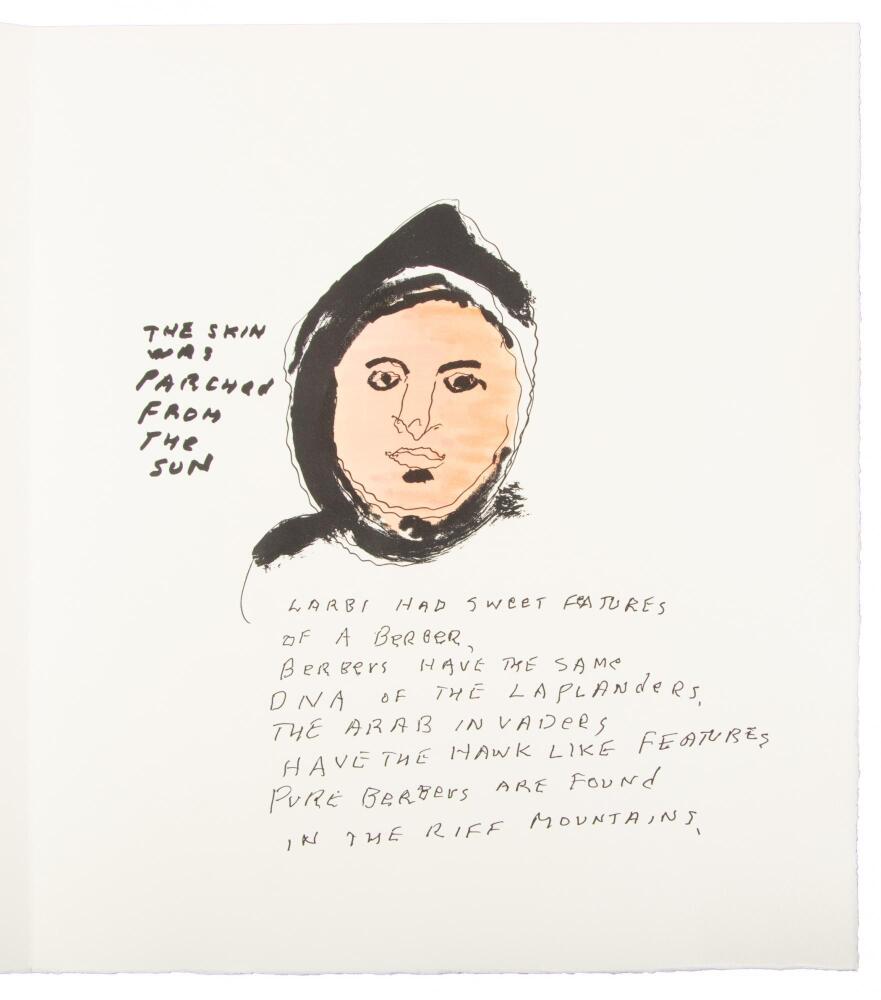 THE SKIN
WAS
PARCHed
FROM
THe
SUN
LARBI HAD SWEET FEATURES
OF A BERBER,
BERBERS HAVE THE SAMe
DNA OF THE LAPLANdeRS,
THE ARAB INVADeRS
HAVE THE HAWK LIKE FEATURES
PURE BERBERS ARE FOUNd
IN THE RIFF MOUNTAINS,